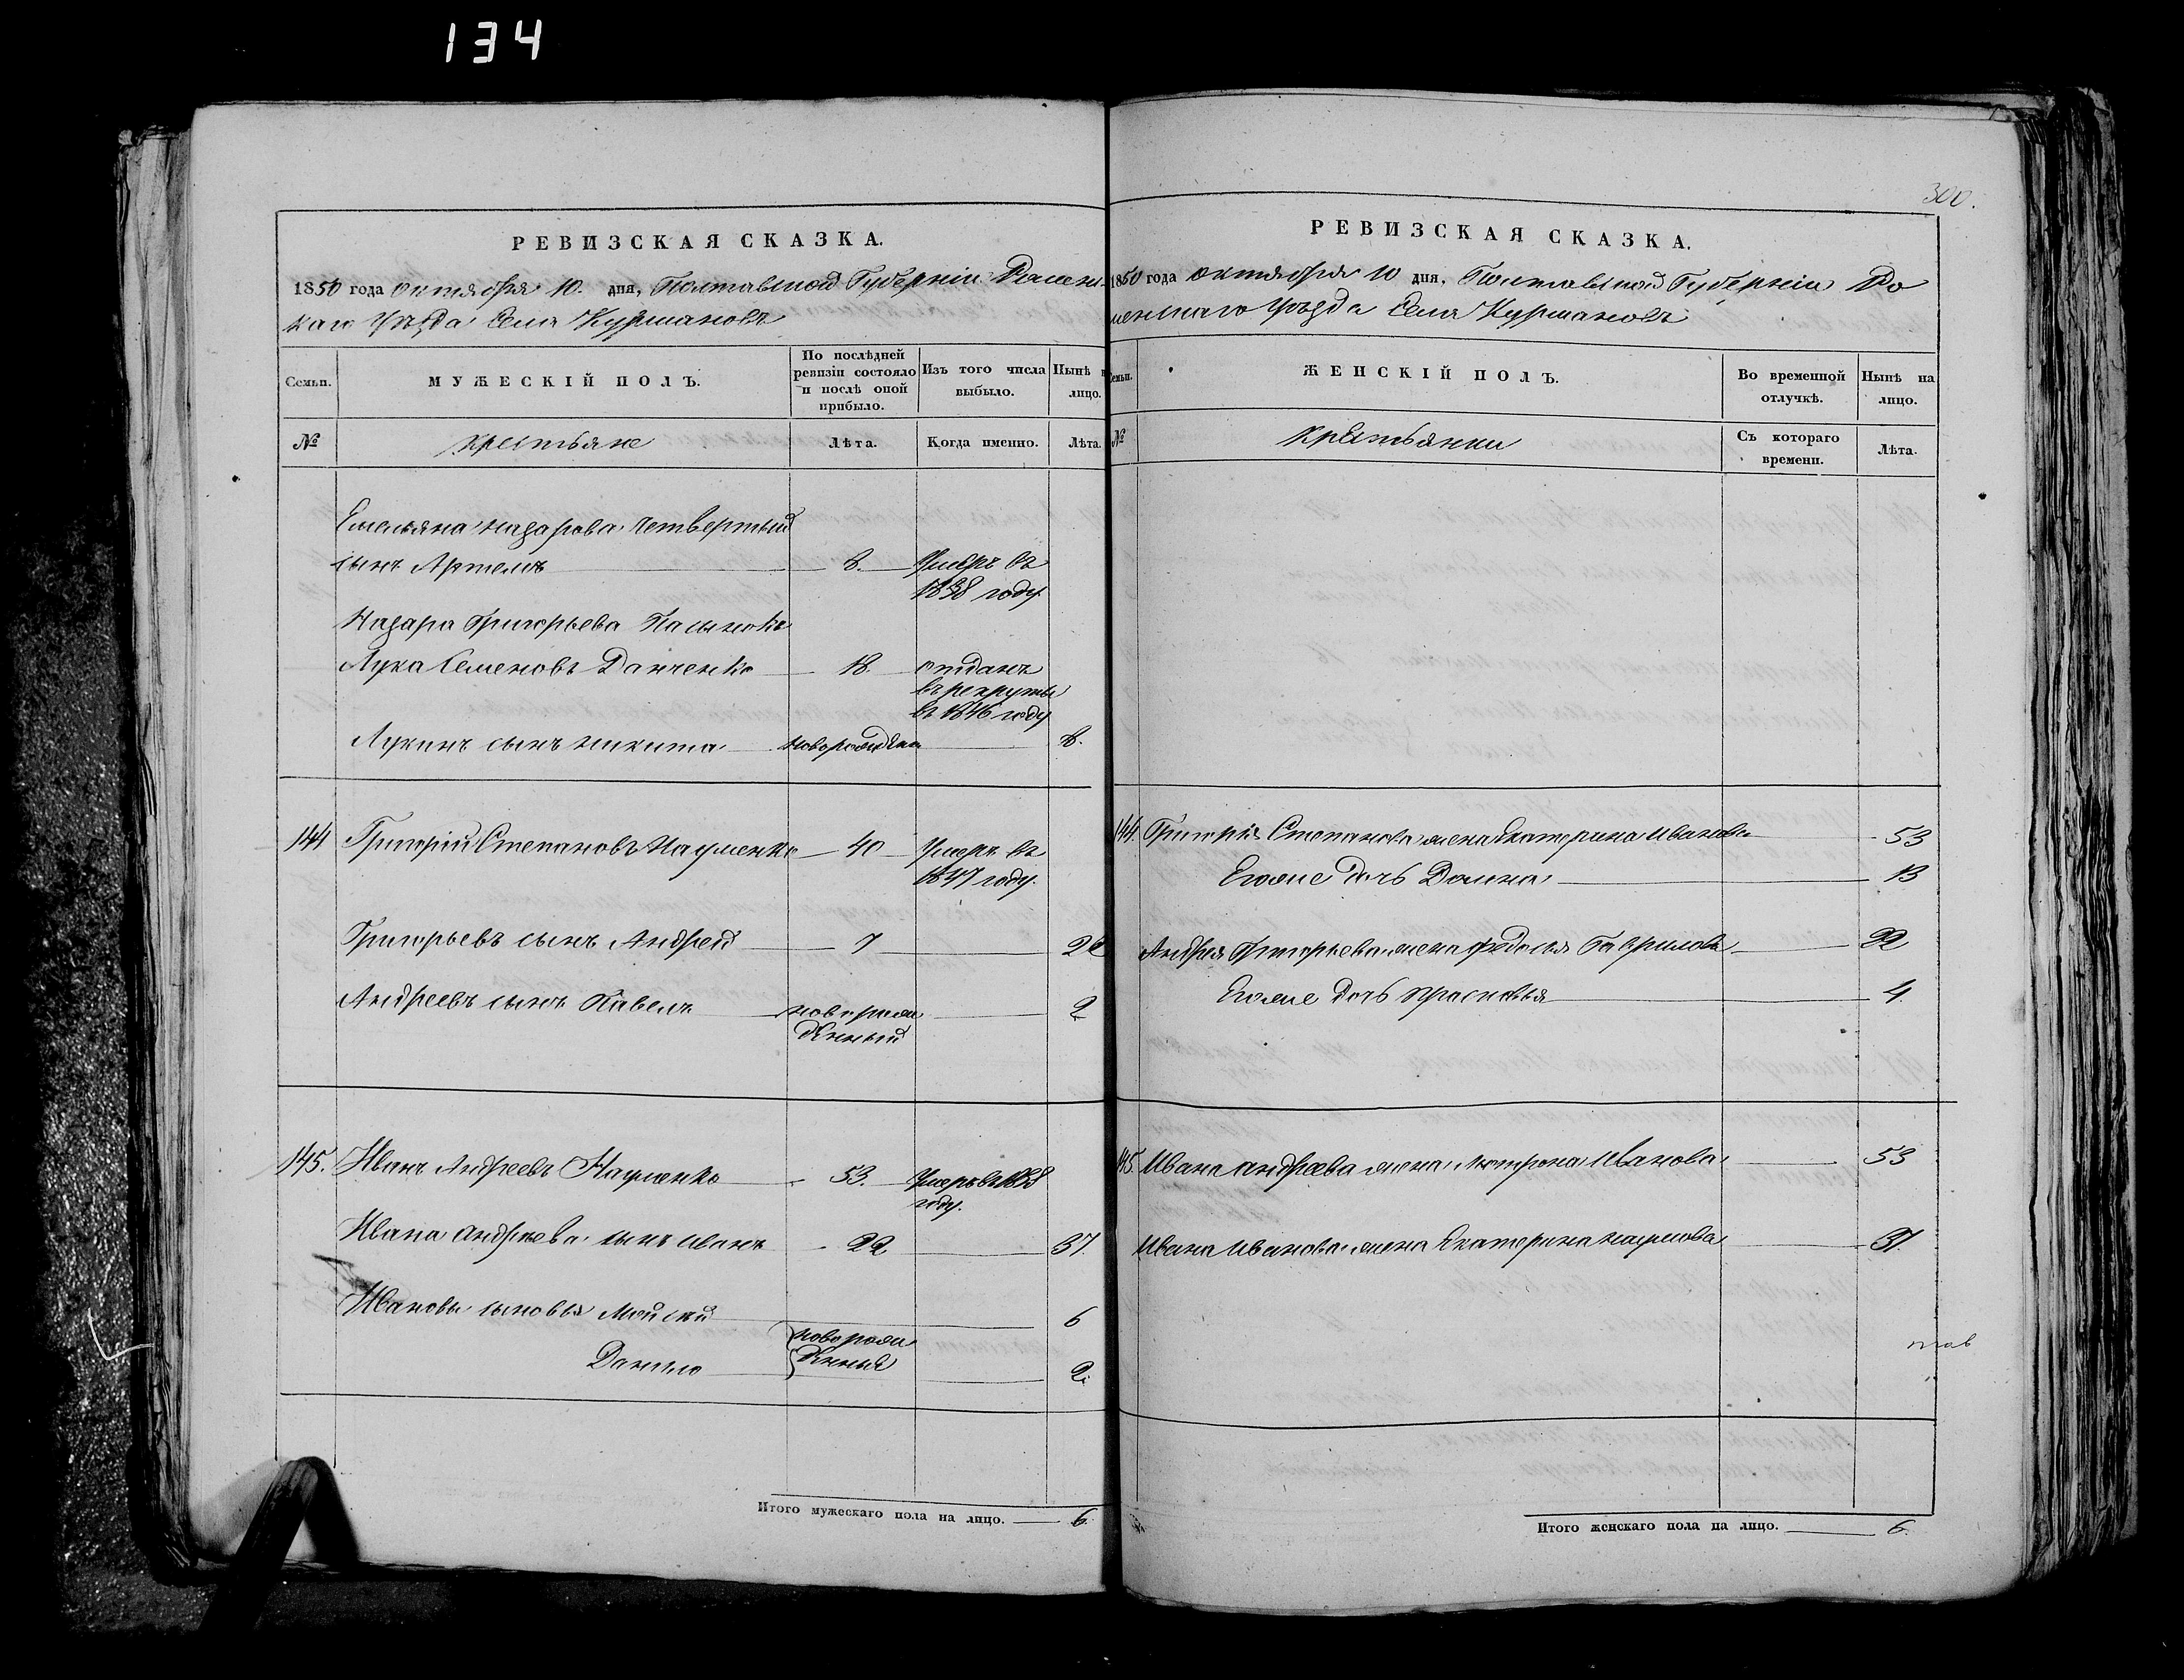 134
РЕВИЗСКАЯ СКАЗКА.
1850 года октября 10. дня, Полтавской Губерніи Ромен-
скаго Уѣзда Села Курмановъ
Семьи.
МУЖЕСКІЙ ПОЛЪ.
По послѣдней ревизіи состояло и послѣ оной прибыло.
Изъ того числа выбыло.
Нынѣ на лицо.
№
крестьяне
Лѣта.
Когда именно.
Лѣта.
Емельяна Назарова четвертый
сынъ Артемъ 8. Умеръ въ
1838 году
Назара Григорьева Пасынокъ
Лука Семеновъ Данченко 18 отданъ
въ рекруты
въ 1846 году
Лукинъ сынъ Никита 8.
144 Григорій Степановъ Науменко 40 Умеръ въ
1847 году.
Григорьевъ сынъ Андрей 7
Андреевъ сынъ Павелъ новорож 2
денный
145. Иванъ Андреевъ Науменко 53. Умеръ въ 1838
году.
Ивана Андреева сынъ Иванъ 22 37.
Ивановы сыновья Мойсей 6
новорож
Данило денные 2.
Итого мужескаго пола на лицо. 6.
300.
РЕВИЗСКАЯ СКАЗКА.
1850 года октября 10 дня, Полтавской Губерніи Ро
менскаго Уѣзда Села Курмановъ
Семьи.
ЖЕНСКІЙ ПОЛЪ.
Во временной отлучкѣ.
Нынѣ на лицо.
№
крестьянки
Съ котораго времени.
Лѣта.
144. Григорія Степанова жена Екатерина Иванова 53
Егоже дочь Домна 13
Андрея Григорьева жена Федосья Гаврилова 22
Егоже дочь Прасковья 4.
145. Ивана Андреева жена Мотрона Иванова 53
Ивана Иванова жена Екатерина Наумова 37.
Итого женскаго пола на лицо. 6.